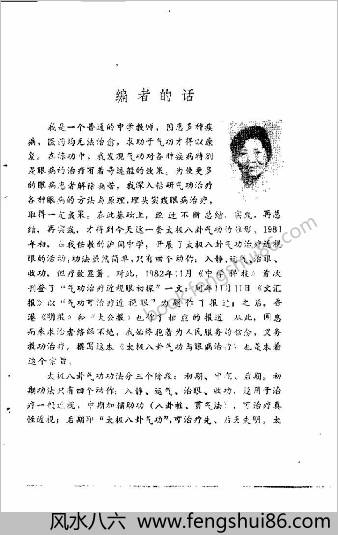 编者的话
我是一个普通的中学教师，因患多种疾
病，医药均无法治愈，求助于气功才得以康
复。在练功中，我发现气功对各种疾病特别
是眼病的治疗有着奇迹般的效果。为使更多
的眼病患者解除病苦，我深入钻研气功治疗
各种眼病的方法与原理，埋头实践眼病治疗，
取得一定效果。在此基础上，经过不断总结、实践，再总
结、再实践，才得到今天这一套太极八卦气功的雏形。1981
年初，在我任教的沪闵中学，开展了太极八卦气功治疗近视
眼的活动；功法虽然简单，只有四个动作：入静、运气、治眼、
收功，但疗效显著。对此，1982年11月《中学科技》首次
刊登了“气功治疗近视眼初探”一文；同年11月11日《文汇
报》以“气功可治疗近视眼”为题作了报道；之后，香
港《明报》和《大公报》也作了相应的报道。从此，因患
而来求治者络绎不绝，我始终抱着为人民服务的信念，义务
教功治疗。撰写这本《太极八卦与眼病治疗》也是本着
这个宗旨。
太极八卦气功功法分三个阶段：初期、中气、后期。初
期功法只有四个动作：入静、运气、治眼、收功，适用于治
疗一般近视，中期加辅助功（八卦桩、贯气法），可治疗真
性近视；后期即“太极八卦气功”，可治疗先、后天失明。太
book.fengshui86.com
风水八六 www.fengshui86.com